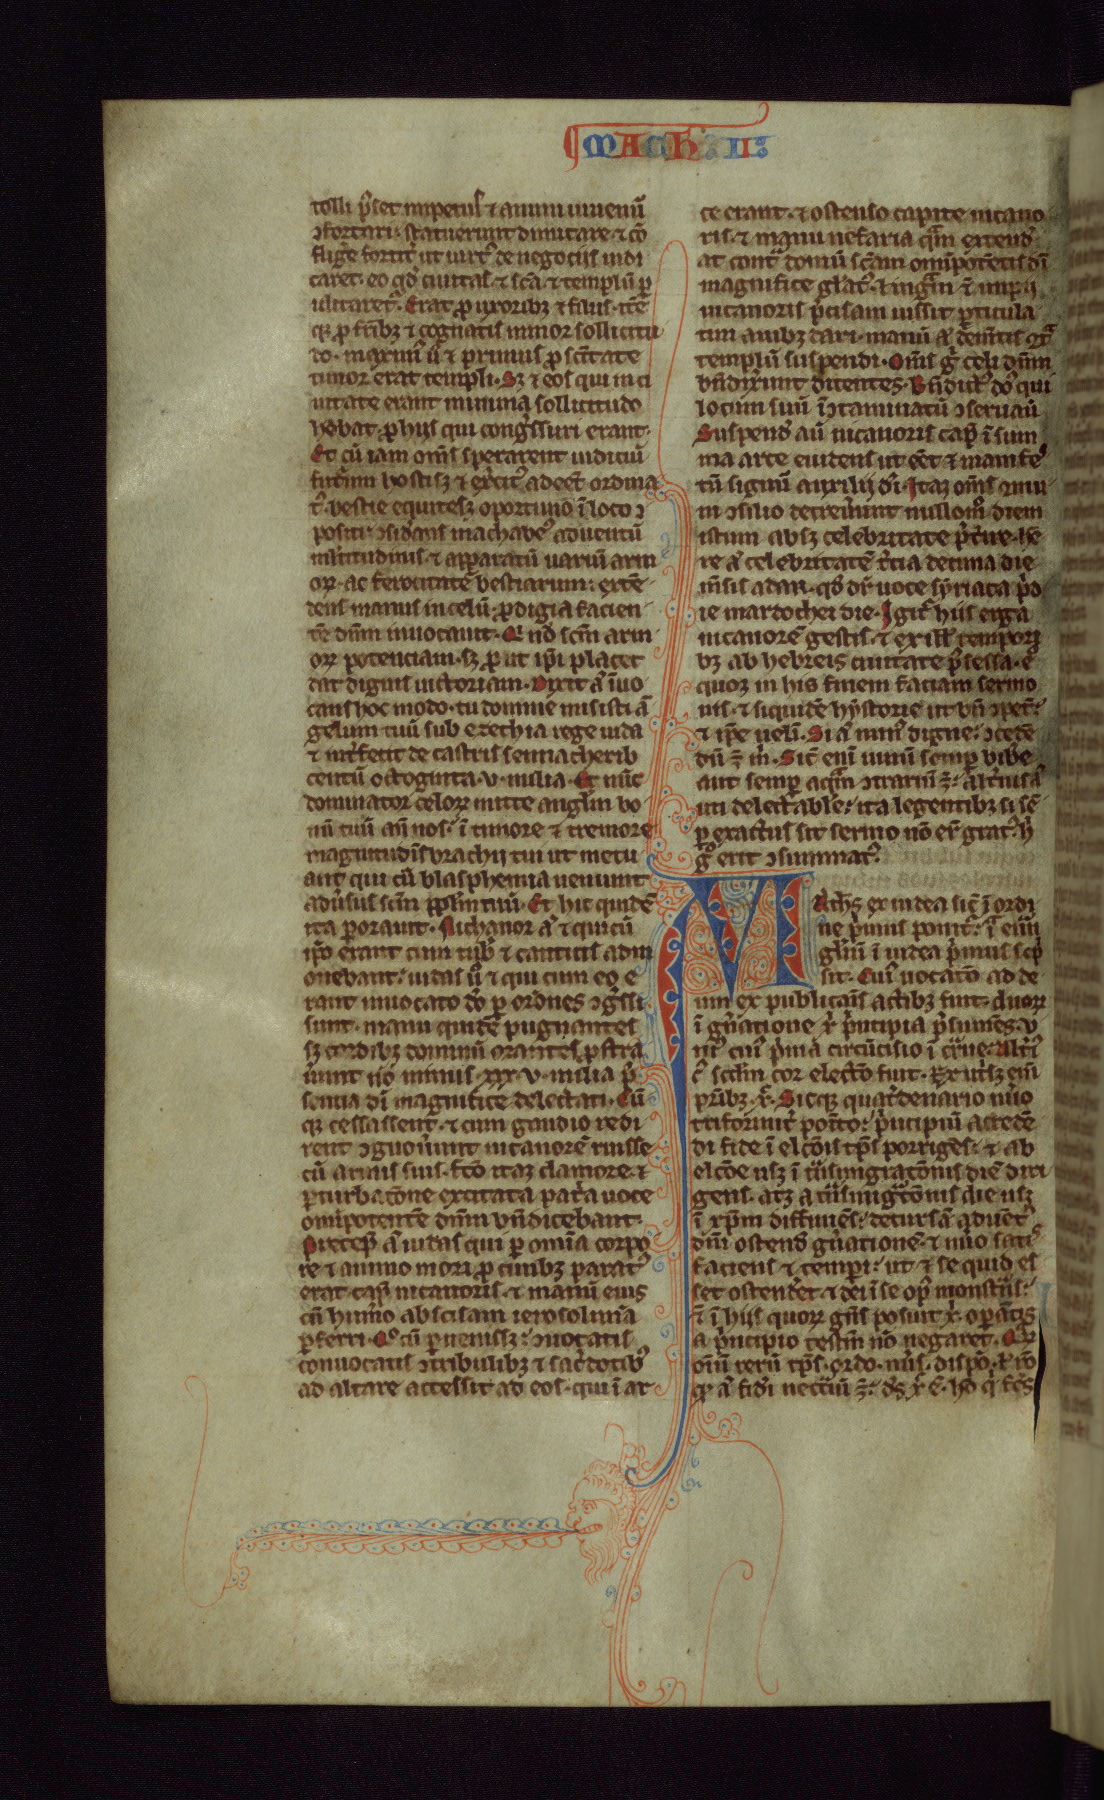 MACH II
tolli p̄set impetus ⁊ animi iuuenū
ꝯfortari. statuerunt dimicare ⁊ cō
fligē fortit᷑ ut uirt᷑ de negociis iudi
caret. eo qd̓ ciuitas ⁊ sc̄a ⁊ templū p
iclitaret᷑. Erat ꝓ uxoribꝫ ⁊ filiis. itē
qꝫ ꝓ fr̄ibꝫ ⁊ cognatis minor sollicitu
do. maxim᷑ ū ⁊ primus ꝓ sc̄itate
timor erat templi. Sꝫ ⁊ eos qui in ci
uitate erant minima sollicitudo
h̓ebat. ꝓ hiis qui cong̓ssuri erant.
Et cū iam om̄s sperarent iudiciū
futurum hostisqꝫ ⁊ exercit᷑ adeēt ordina
t᷑. bestie equitesqꝫ oportuno ī loco ꝯ
positi ꝯsid̓ans machabe᷑ aduentū
multitudinis ⁊ apparatū uariū arm
oꝝ. ac ferocitatē bestiarum. extē
dens manus in celū. ꝓdigia facien
tē dn̄m inuocauit. Qi nō scd̄m arm
oꝝ potenciam. sꝫ ꝓut ip̄i placet
dat dignis uictoriam. Dixit aū īuo
cans hoc modo. tu domine misisti ā
gelum tuū sub ezechia rege iuda
⁊ int̓fecit de castris sennacherib
centū octoginta. v. milia. Et nūc
dominator celoꝝ mitte anglm̄ bo
nū tuū an̄ nos. ī timore ⁊ tremore
magnitudīs brachij tui ut metu
ant qui cū blasphemia ueniunt
adūsus sc̄m ppl̄m tuū. Et hic quidē
ita ꝑorauit. Nichanor aū ⁊ qui cū
ip̄o erant cum tub̓ ⁊ canticis adm
ouebant. iudas ū ⁊ qui cum eo e
rant inuocato dō ꝑ orōnes ꝯg̓ssi
sunt. manu quidē pugnantes
sꝫ cordibꝫ dominū orantes ꝓstra
uunt nō minus .xxx.v. milia p̄
sentia dī magnifice delectati. Cū
qꝫ cessassent. ⁊ cum gaudio redi
rent ꝯguouunt nicanorē ruisse
cū armis suis. fc̄o itaqꝫ clamore. ⁊
ꝑturbacōne excitata patria uoce
omīpotentē dn̄m bn̄dicebant.
Precep̄ aū iudas qui ꝑ omīa corpo
re ⁊ animo mori ꝓ ciuibꝫ parat᷑
erat cap̓ nicanoris ⁊ manū eius
cū hum̓o abscisam ierosolimā
ꝑferri. Qo cū ꝑuenissꝫ. ꝯuocatis
conuocatis ꝯtribulibꝫ ⁊ sac̓dotibꝰ
ad altare accessit ad eos. qui ī ar
ce erant. ⁊ ostenso capite nicano
ris. ⁊ manu nefaria qm̄ extend̓
at contra domū sc̄am omīpotētis dī
magnifice gl̄at᷑. linguam ī impij
nicanoris p̄cisam iussit ꝑticula
tim auibꝫ dari. manū aū demētis ꝯtra
templū suspendi. Om̄s gͥ celi dn̄m
bn̄dixerunt dicentes. Bn̄dict᷑ dō qui
locum suū īꝯtaminatū ꝯseruauit
Suspend̓ aū nicanoris cap̓ ī sum
ma arce euidens ut eēt ⁊ manifes
tū signū auxilij dī. Itaqꝫ om̄s ꝯmu
ni ꝯsilio decreuerunt nullom̓ diem
istum absqꝫ celebritate p̄terire. h̓e
re aū celebritatē tercia decima die
mēsis adar. qd̓ dr̄ uoce syriaca p̓d
ie mardochei die. Igit᷑ hiis erga
nicanorē gestis. ⁊ ex ill̄ temporī
bꝫ ab hebreis ciuitate p̄sessa. e
quoꝫ in his finem faciam sermo
nis. ⁊ siquidē hystorie ut bn̄ ꝯpet̄
⁊ ip̄e uelī. Si aū min᷑ digne. ꝯcedē
dū ē m̓. Sic̄ enī uinū semper bibe
aut semper aquam ꝯtrariū ē. alt̓nis aū
uti delectabile. ita legentibꝫ si sē
ꝑ exactus sit sermo nō er̄ grat᷑. h̓
gͦ erit ꝯsummat᷑.
Math̄s ex iudea sic̄ ī ordi
ne p̓mus ponit᷑. ita euā
gl̄iū ī iudea p̓mus scp̄
sit. Cui᷑ uocat̄o ad de
um ex publicaīs actibꝫ fuit. duoꝝ
ī gn̄atione xp̄i p̓ncipia p̄sumēs. v
ni᷑ cui᷑ p̓ma circūcisio ī carne. alt̓i᷑
c᷑ scdm̄ cor electo fuit. Ex utrisqꝫ enī
pr̄ibꝫ xp̄c. Sicqꝫ quat̓denario nūo
triformit̓ poīto. p̓ncipiū a credē
di fide ī elcōnis tp̄s porrigēs. ⁊ ab
elcōe usqꝫ ī trāsmigratōnis diē diri
gens. atqꝫ a trāsmigratōnis die usqꝫ
ī xp̄m diffiniēs. decursā aduent᷑
dn̄i ostend̓ gn̄atione. ⁊ nūo satis
faciens ⁊ tempi. ut ⁊ se quid es
set ostend̓et. ⁊ dei ī se op᷑ monstrās.
⁊ ī hijs quoꝝ gn̄s posuit xp̄i. oꝑātis
a p̓ncipio testim̄ nō negaret. Quoꝝ
om̄iū rerū tp̄s. ordo. nūs. dispō. ł rō
qd̓ aū fid̓i necc̄iū ē. ds̄ xp̄c ē. ho qui fc̄s